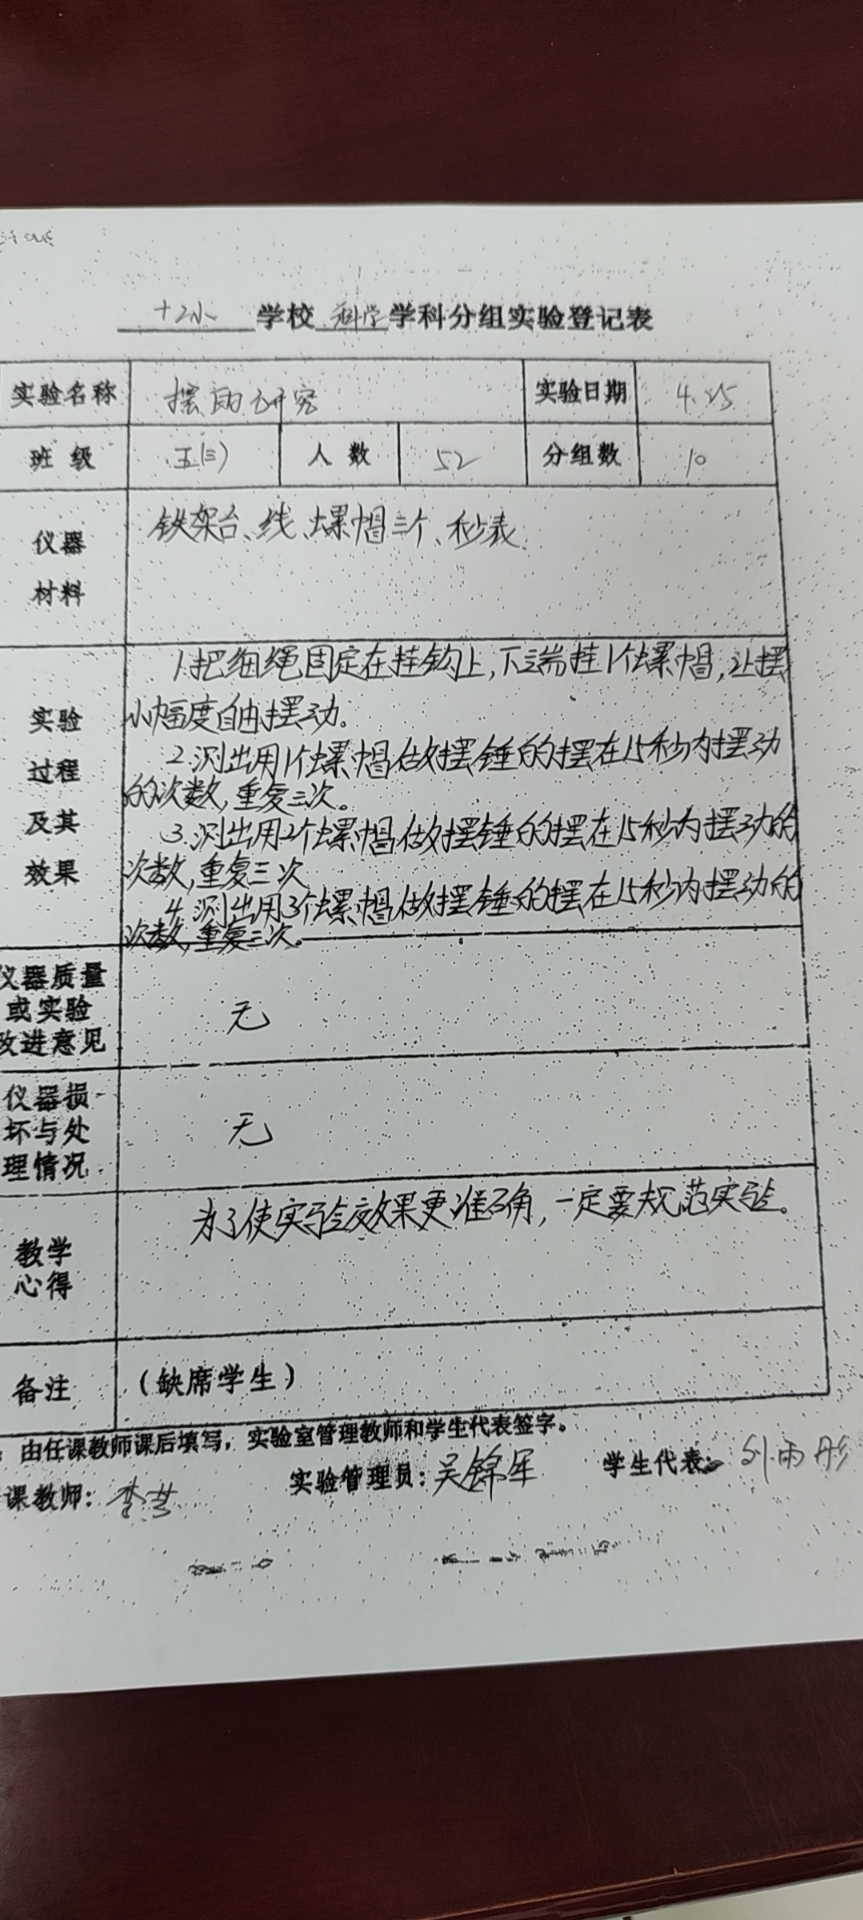 十二小 学校 科学 学科分组实验登记表
实验名称 摆的研究 实验日期 4.25
班级 五(三) 人数 52 分组数 10
仪器材料 铁架台、线、螺帽三个、秒表
实验过程及其效果
1.把细绳固定在挂钩上,下端挂1个螺帽,让摆
小幅度自由摆动。
2.测出用1个螺帽做摆锤的摆在15秒内摆动
的次数,重复三次。
3.测出用2个螺帽做摆锤的摆在15秒内摆动的
次数,重复三次
4.测出用3个螺帽做摆锤的摆在15秒内摆动的
次数,重复三次。
仪器质量
或实验
改进意见
无
仪器损
坏与处
理情况
无
教学
心得
为了使实验效果更准确,一定要规范实验。
备注 (缺席学生)
:由任课教师课后填写,实验室管理教师和学生代表签字。
课教师: 实验管理员:吴锦军 学生代表: 刘雨彤